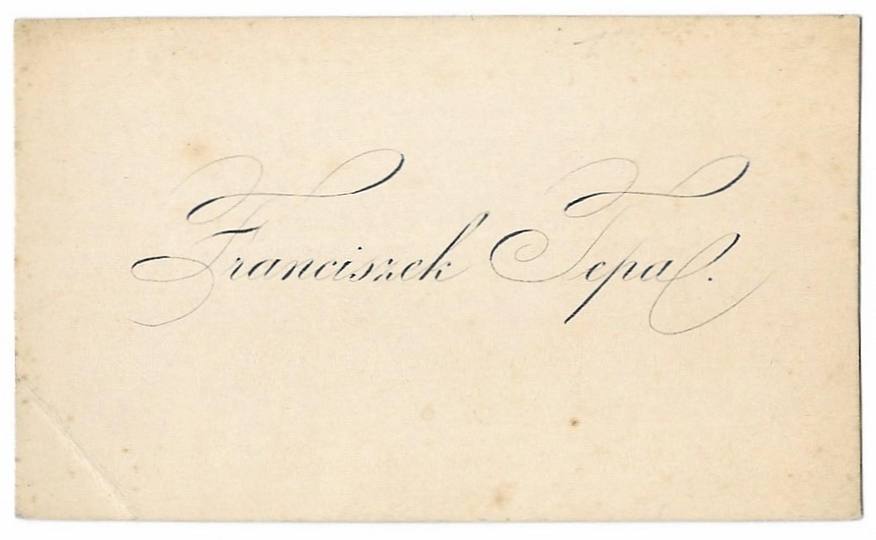 Franciszek Tepa.